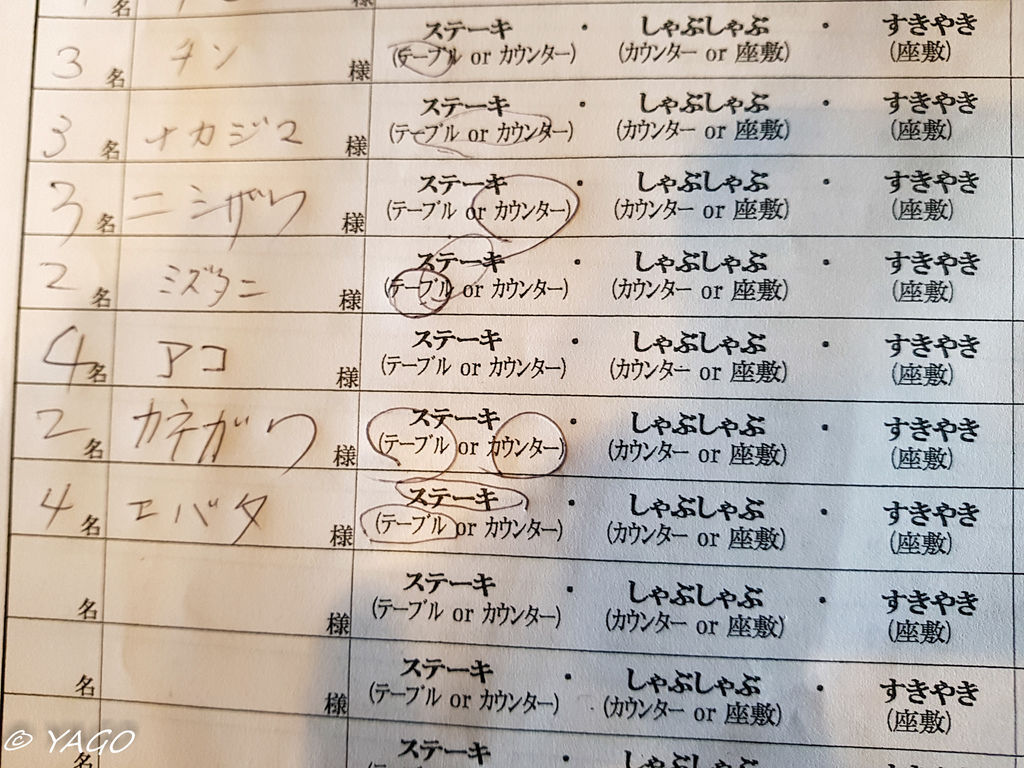 名 様
3名 チン 様 ステーキ ・ しゃぶしゃぶ ・ すきやき
(テーブル or カウンター) (カウンター or 座敷) (座敷)
3名 ナカジマ 様 ステーキ ・ しゃぶしゃぶ ・ すきやき
(テーブル or カウンター) (カウンター or 座敷) (座敷)
3名 ニシザワ 様 ステーキ ・ しゃぶしゃぶ ・ すきやき
(テーブル or カウンター) (カウンター or 座敷) (座敷)
2名 ミズタニ 様 ステーキ ・ しゃぶしゃぶ ・ すきやき
(テーブル or カウンター) (カウンター or 座敷) (座敷)
4名 アコ 様 ステーキ ・ しゃぶしゃぶ ・ すきやき
(テーブル or カウンター) (カウンター or 座敷) (座敷)
2名 カネガワ 様 ステーキ ・ しゃぶしゃぶ ・ すきやき
(テーブル or カウンター) (カウンター or 座敷) (座敷)
4名 エバタ 様 ステーキ ・ しゃぶしゃぶ ・ すきやき
(テーブル or カウンター) (カウンター or 座敷) (座敷)
名 様 ステーキ ・ しゃぶしゃぶ ・ すきやき
(テーブル or カウンター) (カウンター or 座敷) (座敷)
名 様 ステーキ ・ しゃぶしゃぶ ・ すきやき
(テーブル or カウンター) (カウンター or 座敷) (座敷)
名 ステーキ ・ しゃぶしゃぶ ・ すきやき
© YAGO